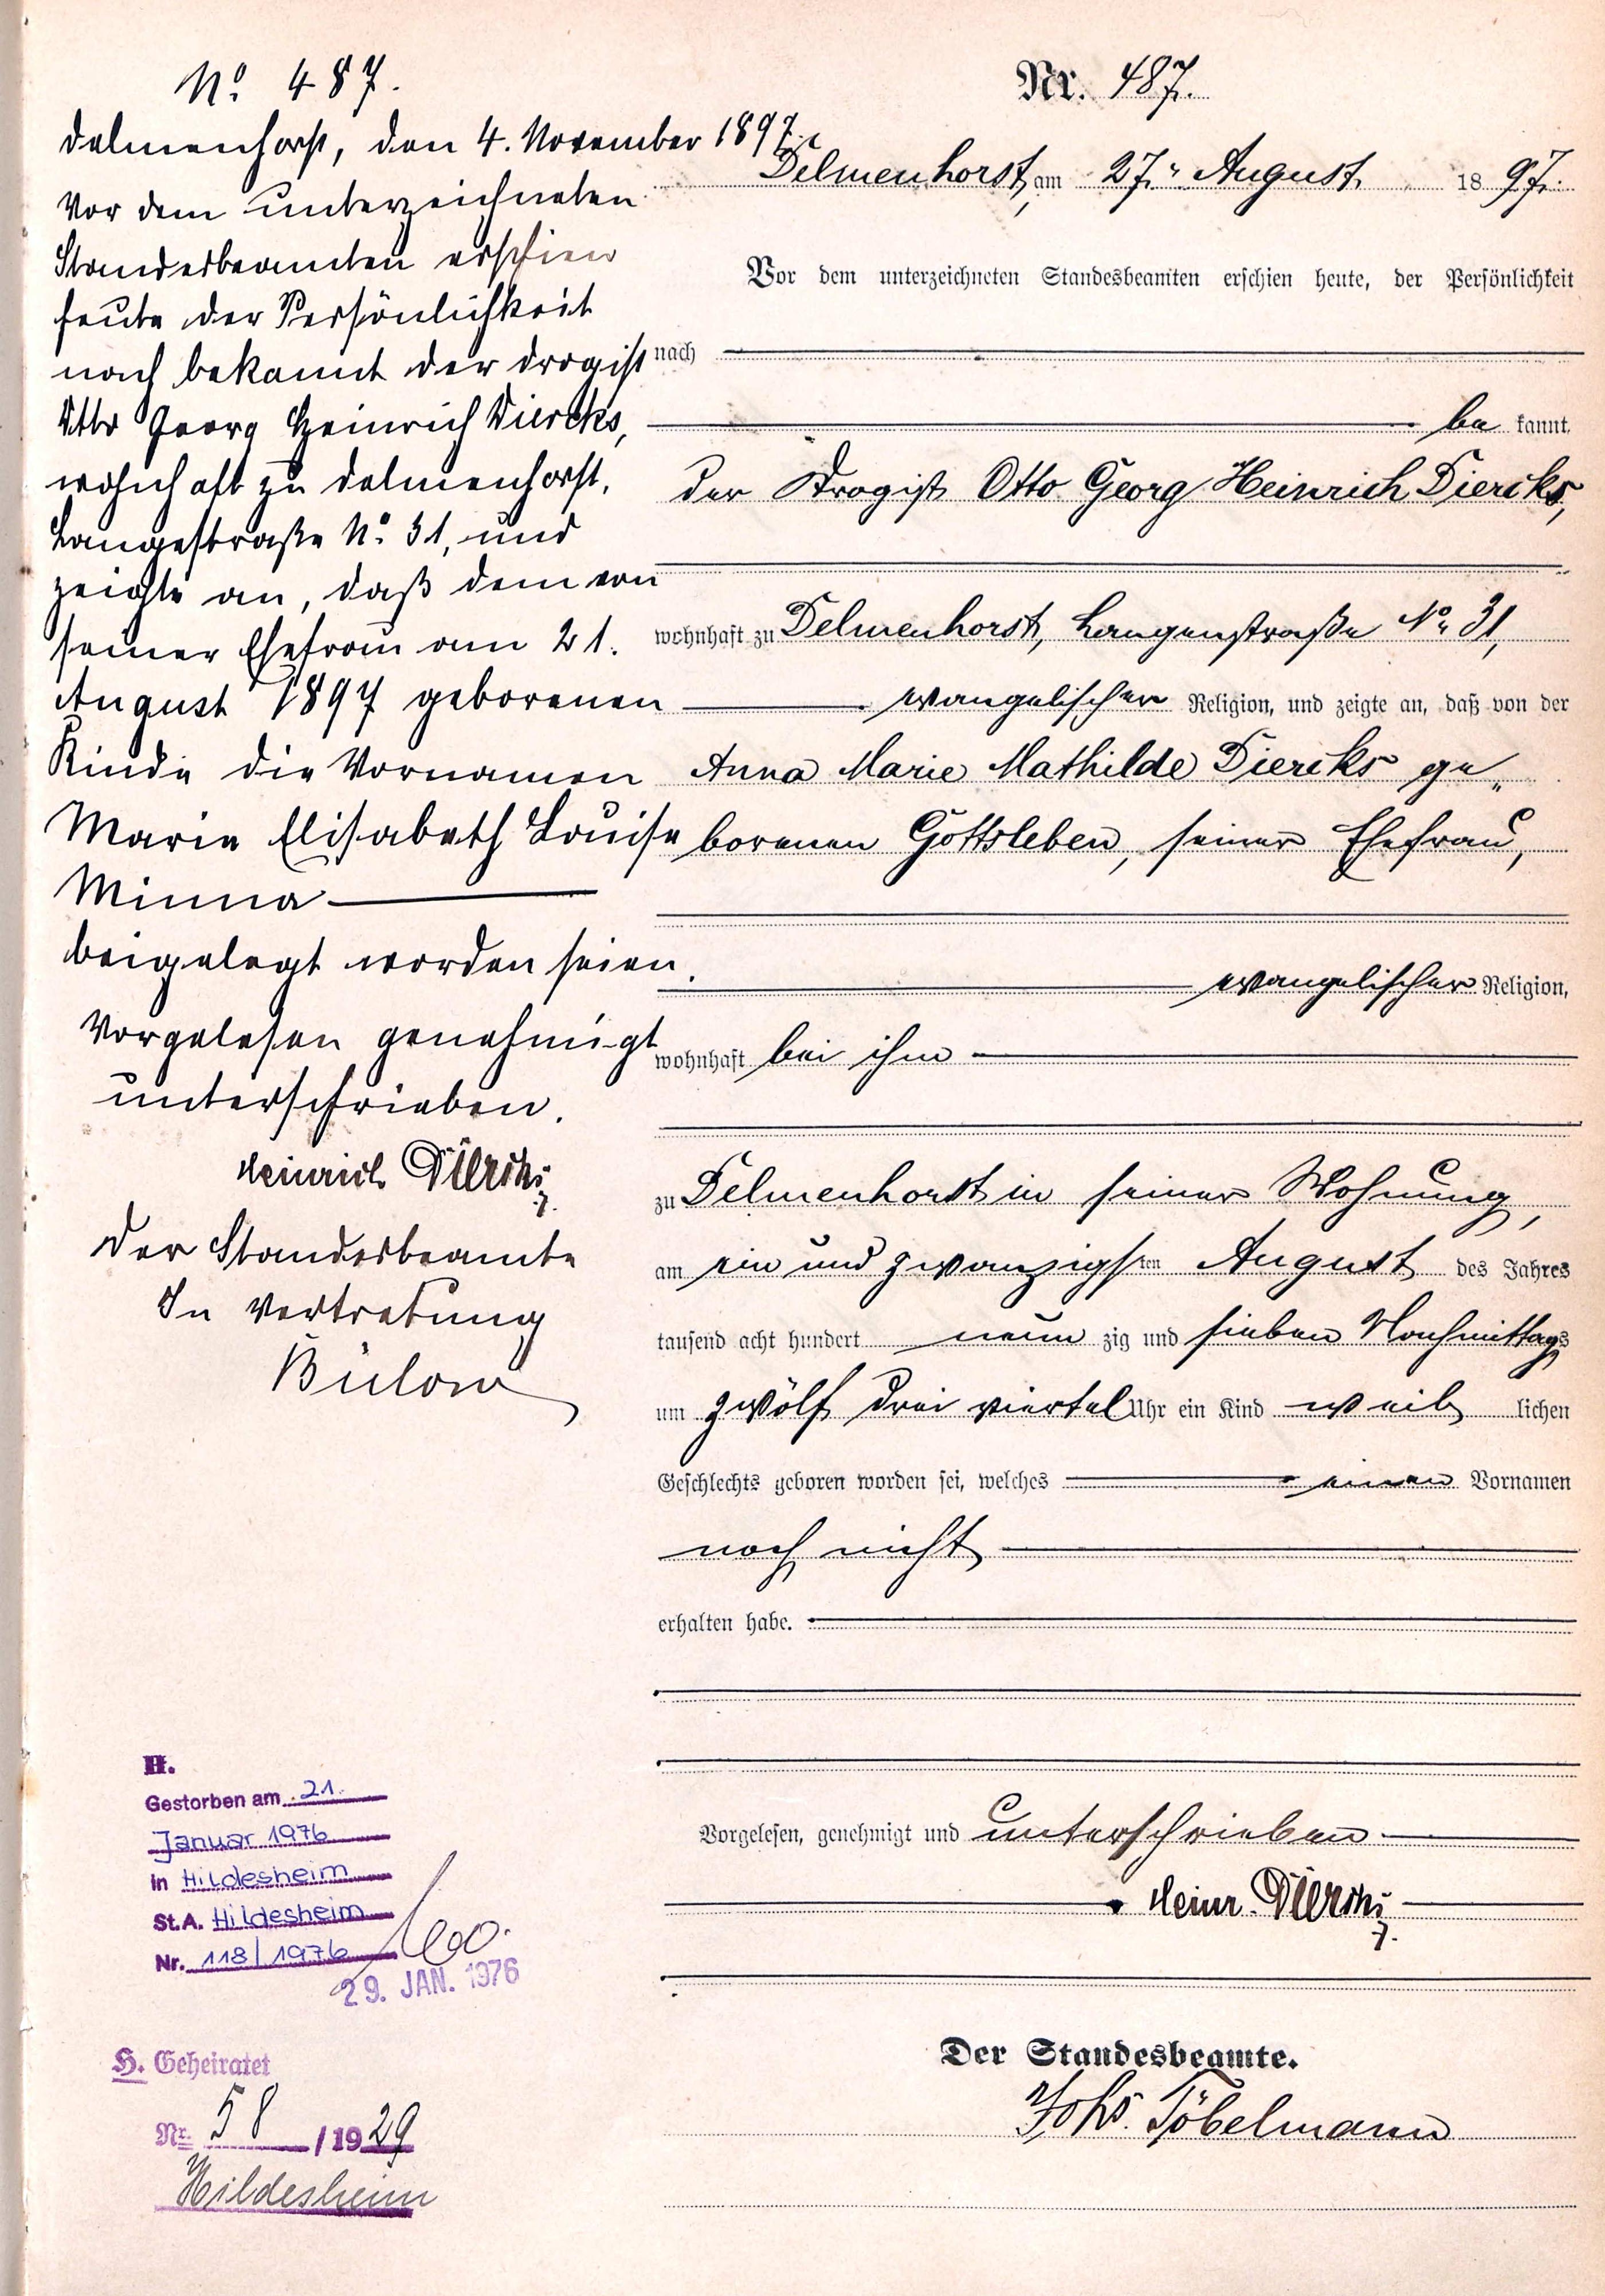 No. 487.
Delmenhorst, den 4. November 1897.
Vor dem unterzeichneten
Standesbeamten erschien
heute der Persönlichkeit
nach bekannt der Drogist
Otto Georg Heinrich Diercks,
wohnhaft zu Delmenhorst,
Langestraße No. 31, und
zeigte an, daß dem von
seiner Ehefrau am 21.
August 1897 geborenen
Kinde die Vornamen
Marie Elisabeth Louise
Minna
beigelegt worden seien.
Vorgelesen genehmigt
unterschrieben.
Heinrich Diercks
Der Standesbeamte
In Vertretung
Bülow
H.
Gestorben am 21.
Januar 1976
in Hildesheim
St.A. Hildesheim
Nr. 118/1976
29. JAN. 1976
H. Geheiratet
Nr. 58/1929
Hildesheim
Nr. 487.
Delmenhorst, am 27. August 1897.
Vor dem unterzeichneten Standesbeamten erschien heute, der Persönlichkeit
nach
be kannt,
der Drogist Otto Georg Heinrich Diercks,
wohnhaft zu Delmenhorst, Langenstraße No. 31,
evangelischer Religion, und zeigte an, daß von der
Anna Marie Mathilde Diercks ge„
borenen Gottsleben, seiner Ehefrau,
evangelischer Religion,
wohnhaft bei ihm
zu Delmenhorst in seiner Wohnung,
am ein und zwanzigsten August des Jahres
tausend acht hundert neun zig und sieben Nachmittags
um zwölf drei viertel Uhr ein Kind weib lichen
Geschlechts geboren worden sei, welches einen Vornamen
noch nicht
erhalten habe.
Vorgelesen, genehmigt und unterschrieben
Heinr. Diercks
Der Standesbeamte.
Johs. Töbelmann